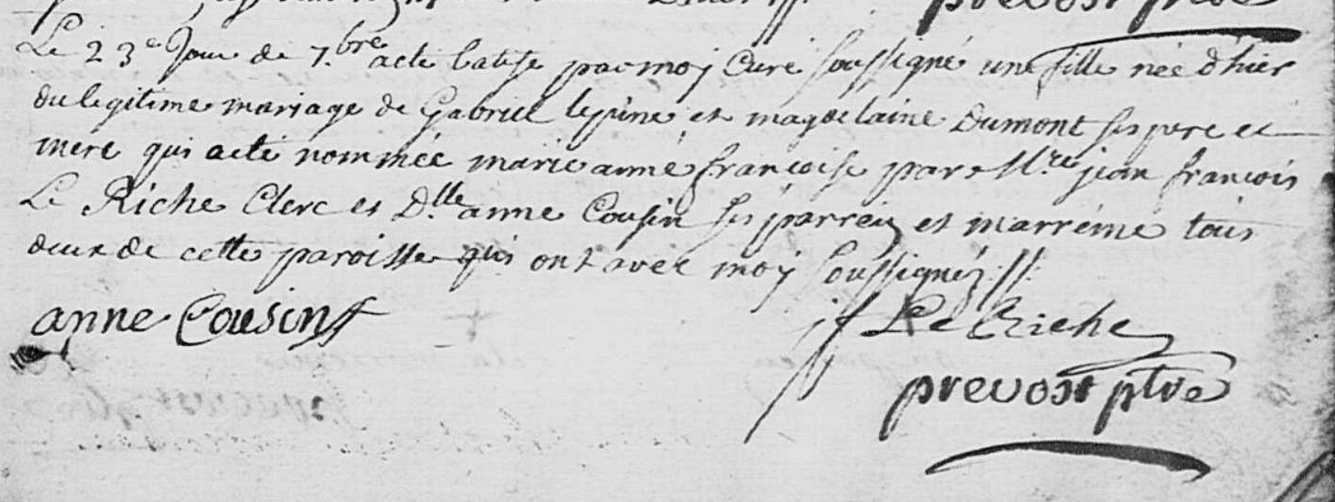 prevost ptre
Le 23e Jour de 7.bre acté batise par moy Curé soussigné une fille née d'hier
du legitime mariage de Gabriel lepine et magdelaine Dumont ses pere et
mere qui acté nommée marie anne françoise par Mre jean françois
Le Riche Clerc et D.lle anne Cousin ses parrein et marréine tous
deux de cette paroisse qui ont avec moy soussignéz.//.
anne Cousin
jf Le Riche
prevost ptre